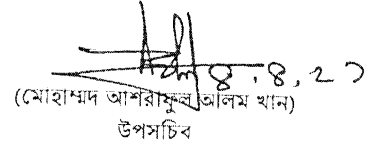 ৪.৪.২১
(মোহাম্মদ আশরাফুল আলম খান)
উপসচিব